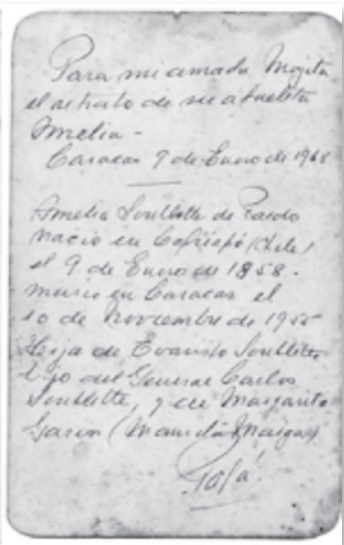 Para mi amada Mojita
el retrato de su abuelita
Amelia -
Caracas 9 de Enero de 1968
Amelia Soublette de Pardo
nació en Copiapó (Chile)
el 9 de Enero de 1858.
murio en Caracas el
10 de noviembre de 1955
Hija de Evaristo Soublette
hijo del General Carlos
Soublette, y de Margarita
Garin (Mamita Maiga)